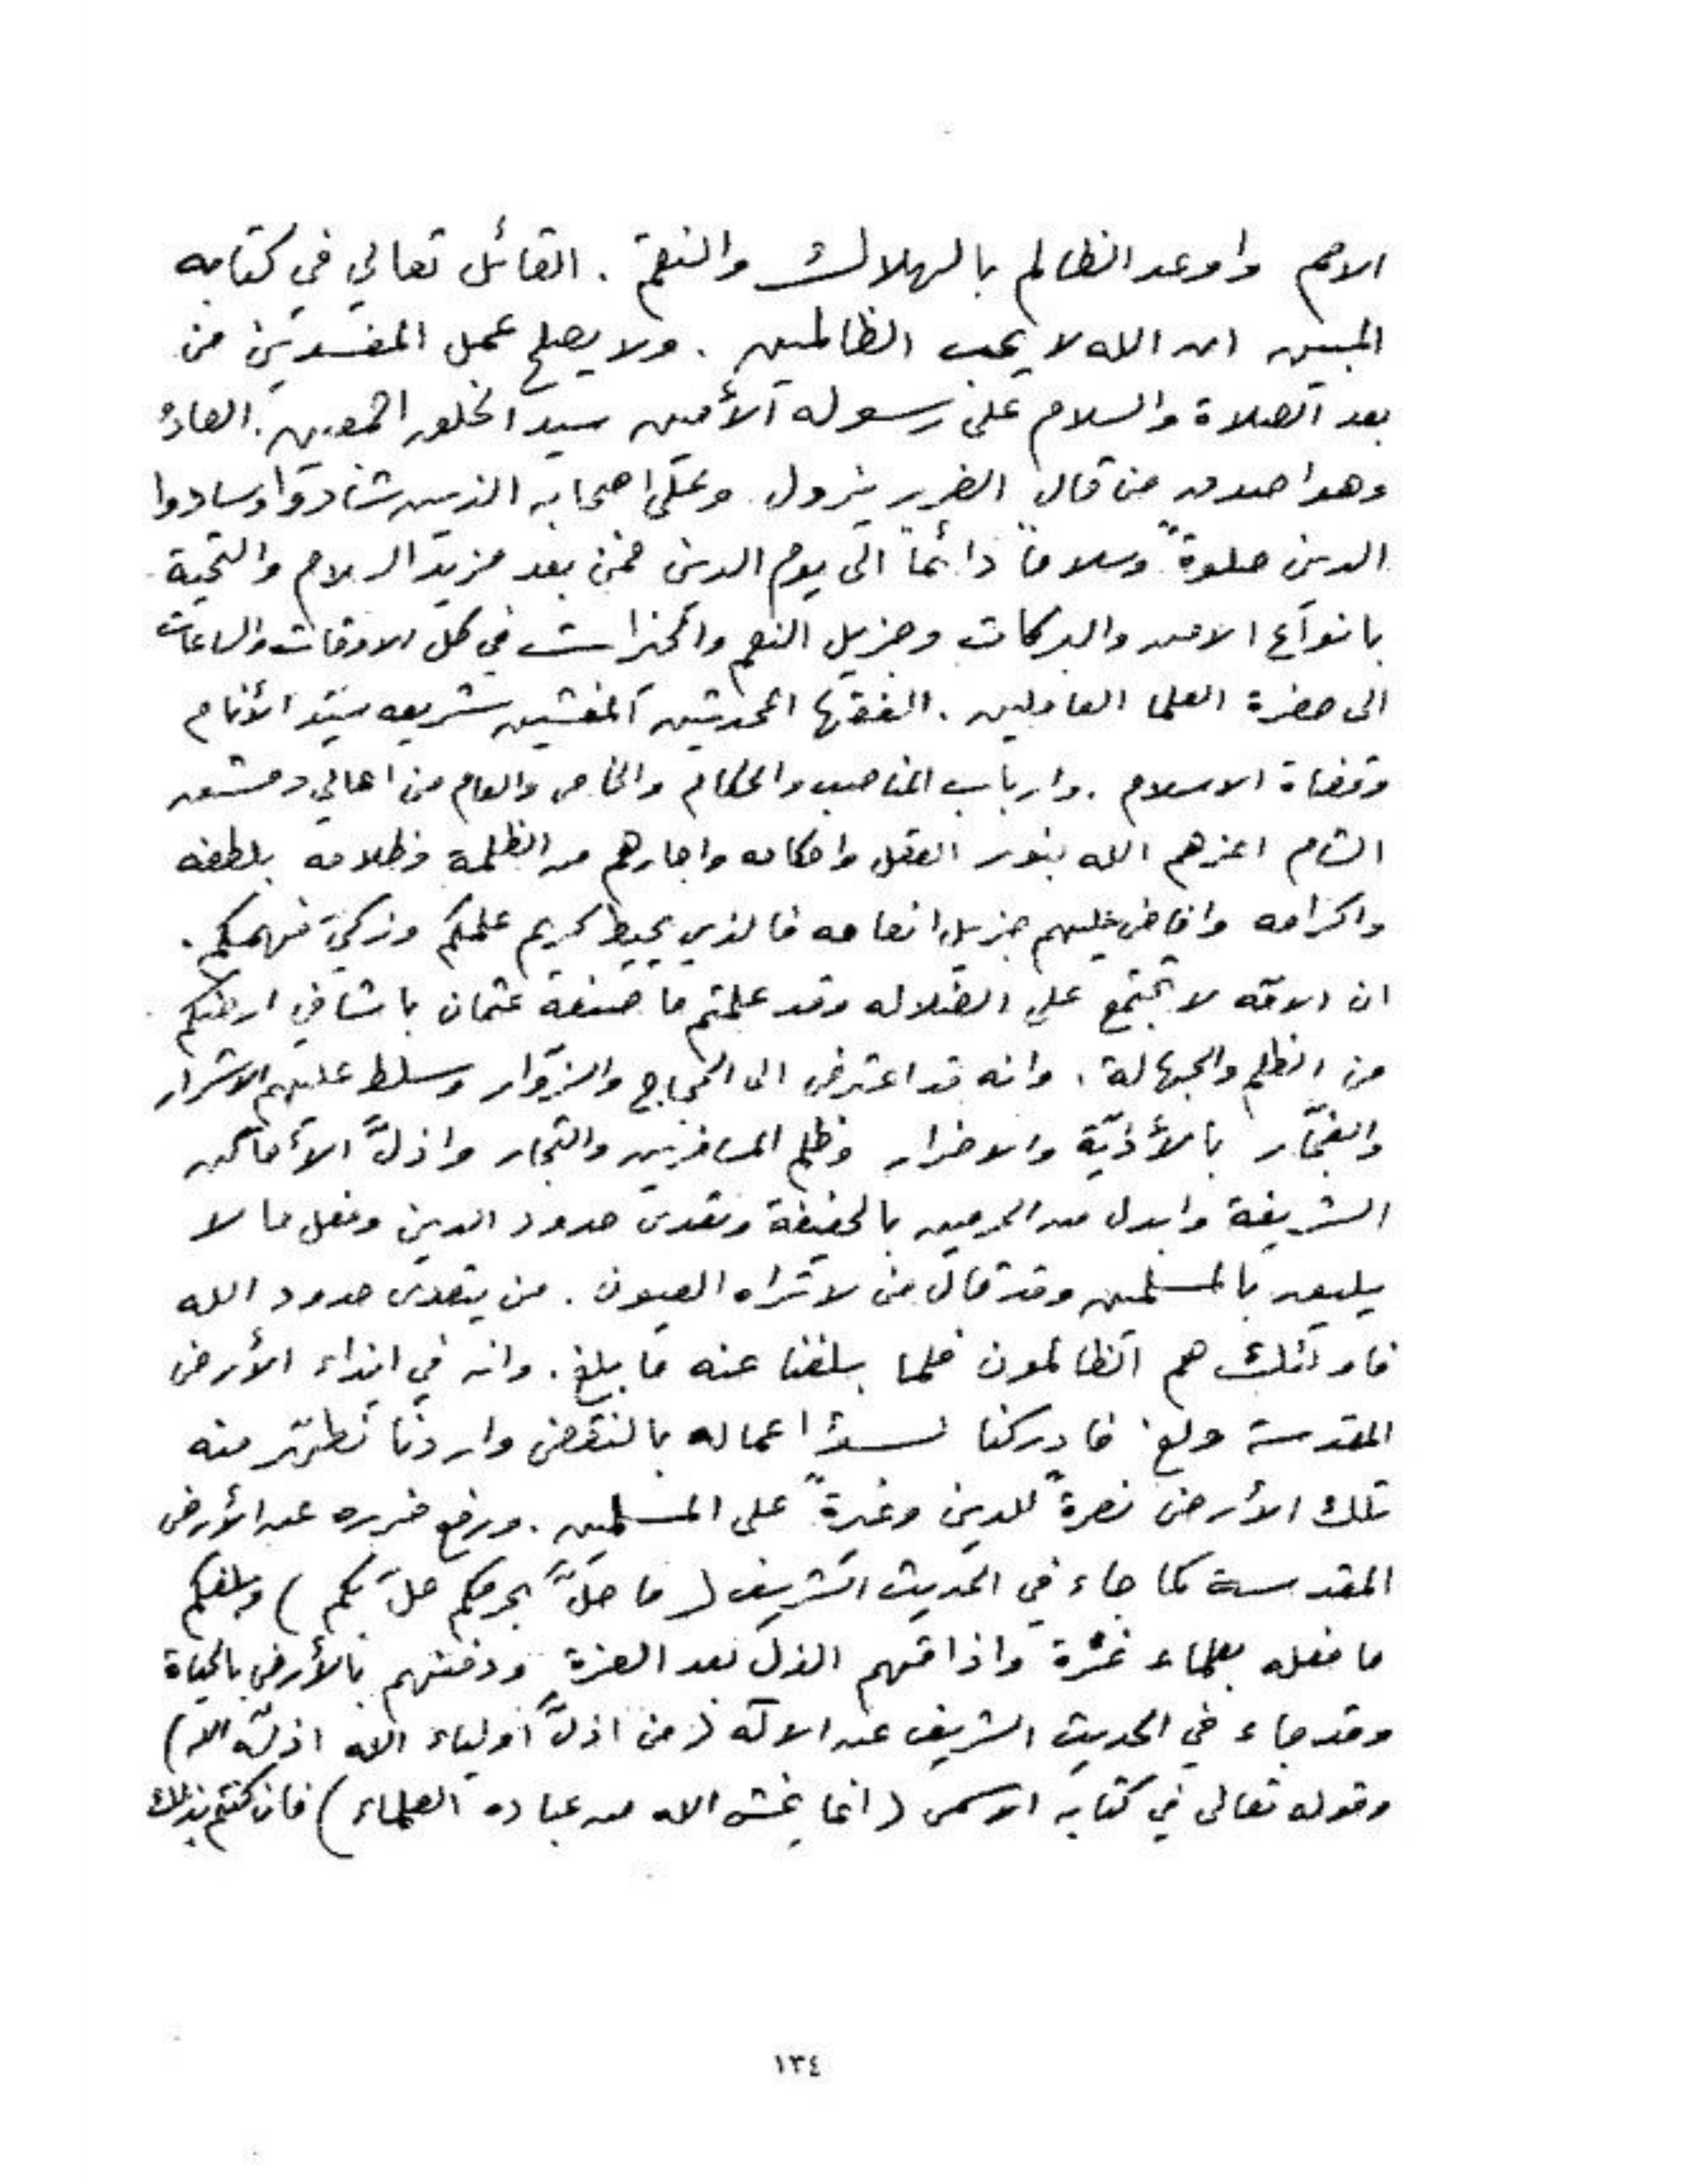 الامم واوعد الظالم بالهلاك والنقم . القائل تعالي في كتابه
المبين ان الله لا يحب الظالمين . ولا يصلح عمل المفسدين من
بعد الصلاة والسلام على رسوله الأمين سيد الخلق اجمعين .
وهو اصدق من قال الضرر يزول . وعلى اصحابه الذين شادوا وسادوا
الدين صلوةً وسلاماً دائماً الى يوم الدين فمن بعد مزيد السلام والتحية
بانواع الامن والبركات وجزيل النعم والخيرات في كل الاوقات والساعات
الى حضرة العلما العاملين . الفقها المحدثين المفتين شريعه سيّد الأنام
وقضاة الاسلام . وارباب المناصب والحكام والخاص والعام من اهالي دمشق
الشام اعزهم الله بنور العقل واحكامه واجارهم من الظلمة وظلامه بلطفه
واكرامه وافاض عليهم جزيل انعامه فالذي يحيط كريم علمكم وزكيّ فهمكم .
ان الامّه لا تجتمع علي الضلاله وقد علمتم ما صنعة عثمان باشا في ارضكم
من الظلم والجهالة . وانه قد اعترض الى الحجاج والزوّار وسلط عليهم الاشرار
والفجّار بالأذيّة والاضرار وظلم المسافرين والتجار واذلّ الأماكن
الشريفة وابدل من الحرمين بالخيفة وتعدى حدود الدين وفعل ما لا
يليق بالمسلمين وقد قال من لا تراه العيون . من يتعدى حدود الله
فاولئك هم الظالمون فلما بلغنا عنه ما بلغ . وانه في ايذاء الأرض
المقدسة ولغ فادركنا لسؤ اعماله بالنقض واردنا نطهّر منه
تلك الأرض نصرةً للدين وغيرةً على المسلمين . ورفع ضرره عن الأرض
المقدسة كما جاء في الحديث الشريف ( ما حلّ بحرمكم حلّ بكم )
ما فعله بعلماء غزة واذاقهم الذل بعد العزة ودفنهم بالأرض بالحياة
وقد جاء في الحديث الشريف عن الاله ( من اذلّ اولياء الله اذلّه الله )
وقوله تعالى في كتابه الاسمى ( انما يخش الله من عباده العلماء ) فان كنتم بذلك
١٣٤